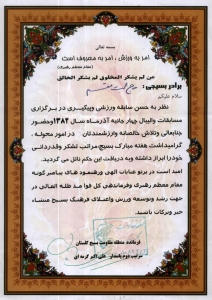 بسمه تعالی
امر به ورزش ، امر به معروف است
(مقام معظم رهبری)
من لم یشکر المخلوق لم یشکر الخالق
برادر بسیجی :
سلام علیکم
نظر به حسن سابقه ورزشی وپیگیری در برگزاری
مسابقات والیبال چهار جانبه آذرماه سال ۱۳۸۴ وحضور
جنابعالی وتلاش خالصانه وارزشمندتان در امور محوله ،
گرامیداشت هفته مبارک بسیج مراتب تشکر وقدردانی
خود را ابراز داشته وبه دریافت این حکم نائل می گردید.
امید است با عنایات الهی ورهنمود های پیامبر گونه
مقام معظم رهبری وفرماندهی کل قوا مد ظله العالی در
جهت رشد وتوسعه ورزش واعتلای فرهنگ بسیج منشاء
خیر وبرکات باشید.
فرمانده منطقه مقاومت بسیج گلستان
سرتیپ دوم پاسدار علی اکبر گرمه ای